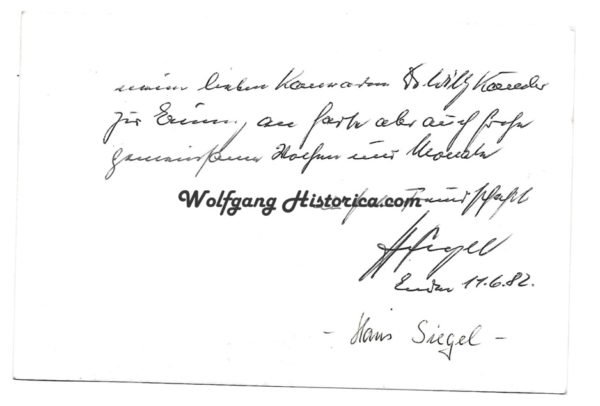 meinem lieben Kameraden Dr. Willy
zur Erinn. an harte aber auch frohe
gemeinsame Wochen und Monate
Wolfgang Historica.com
Freundschaft
HSiegel
11.6.82.
- Hans Siegel -